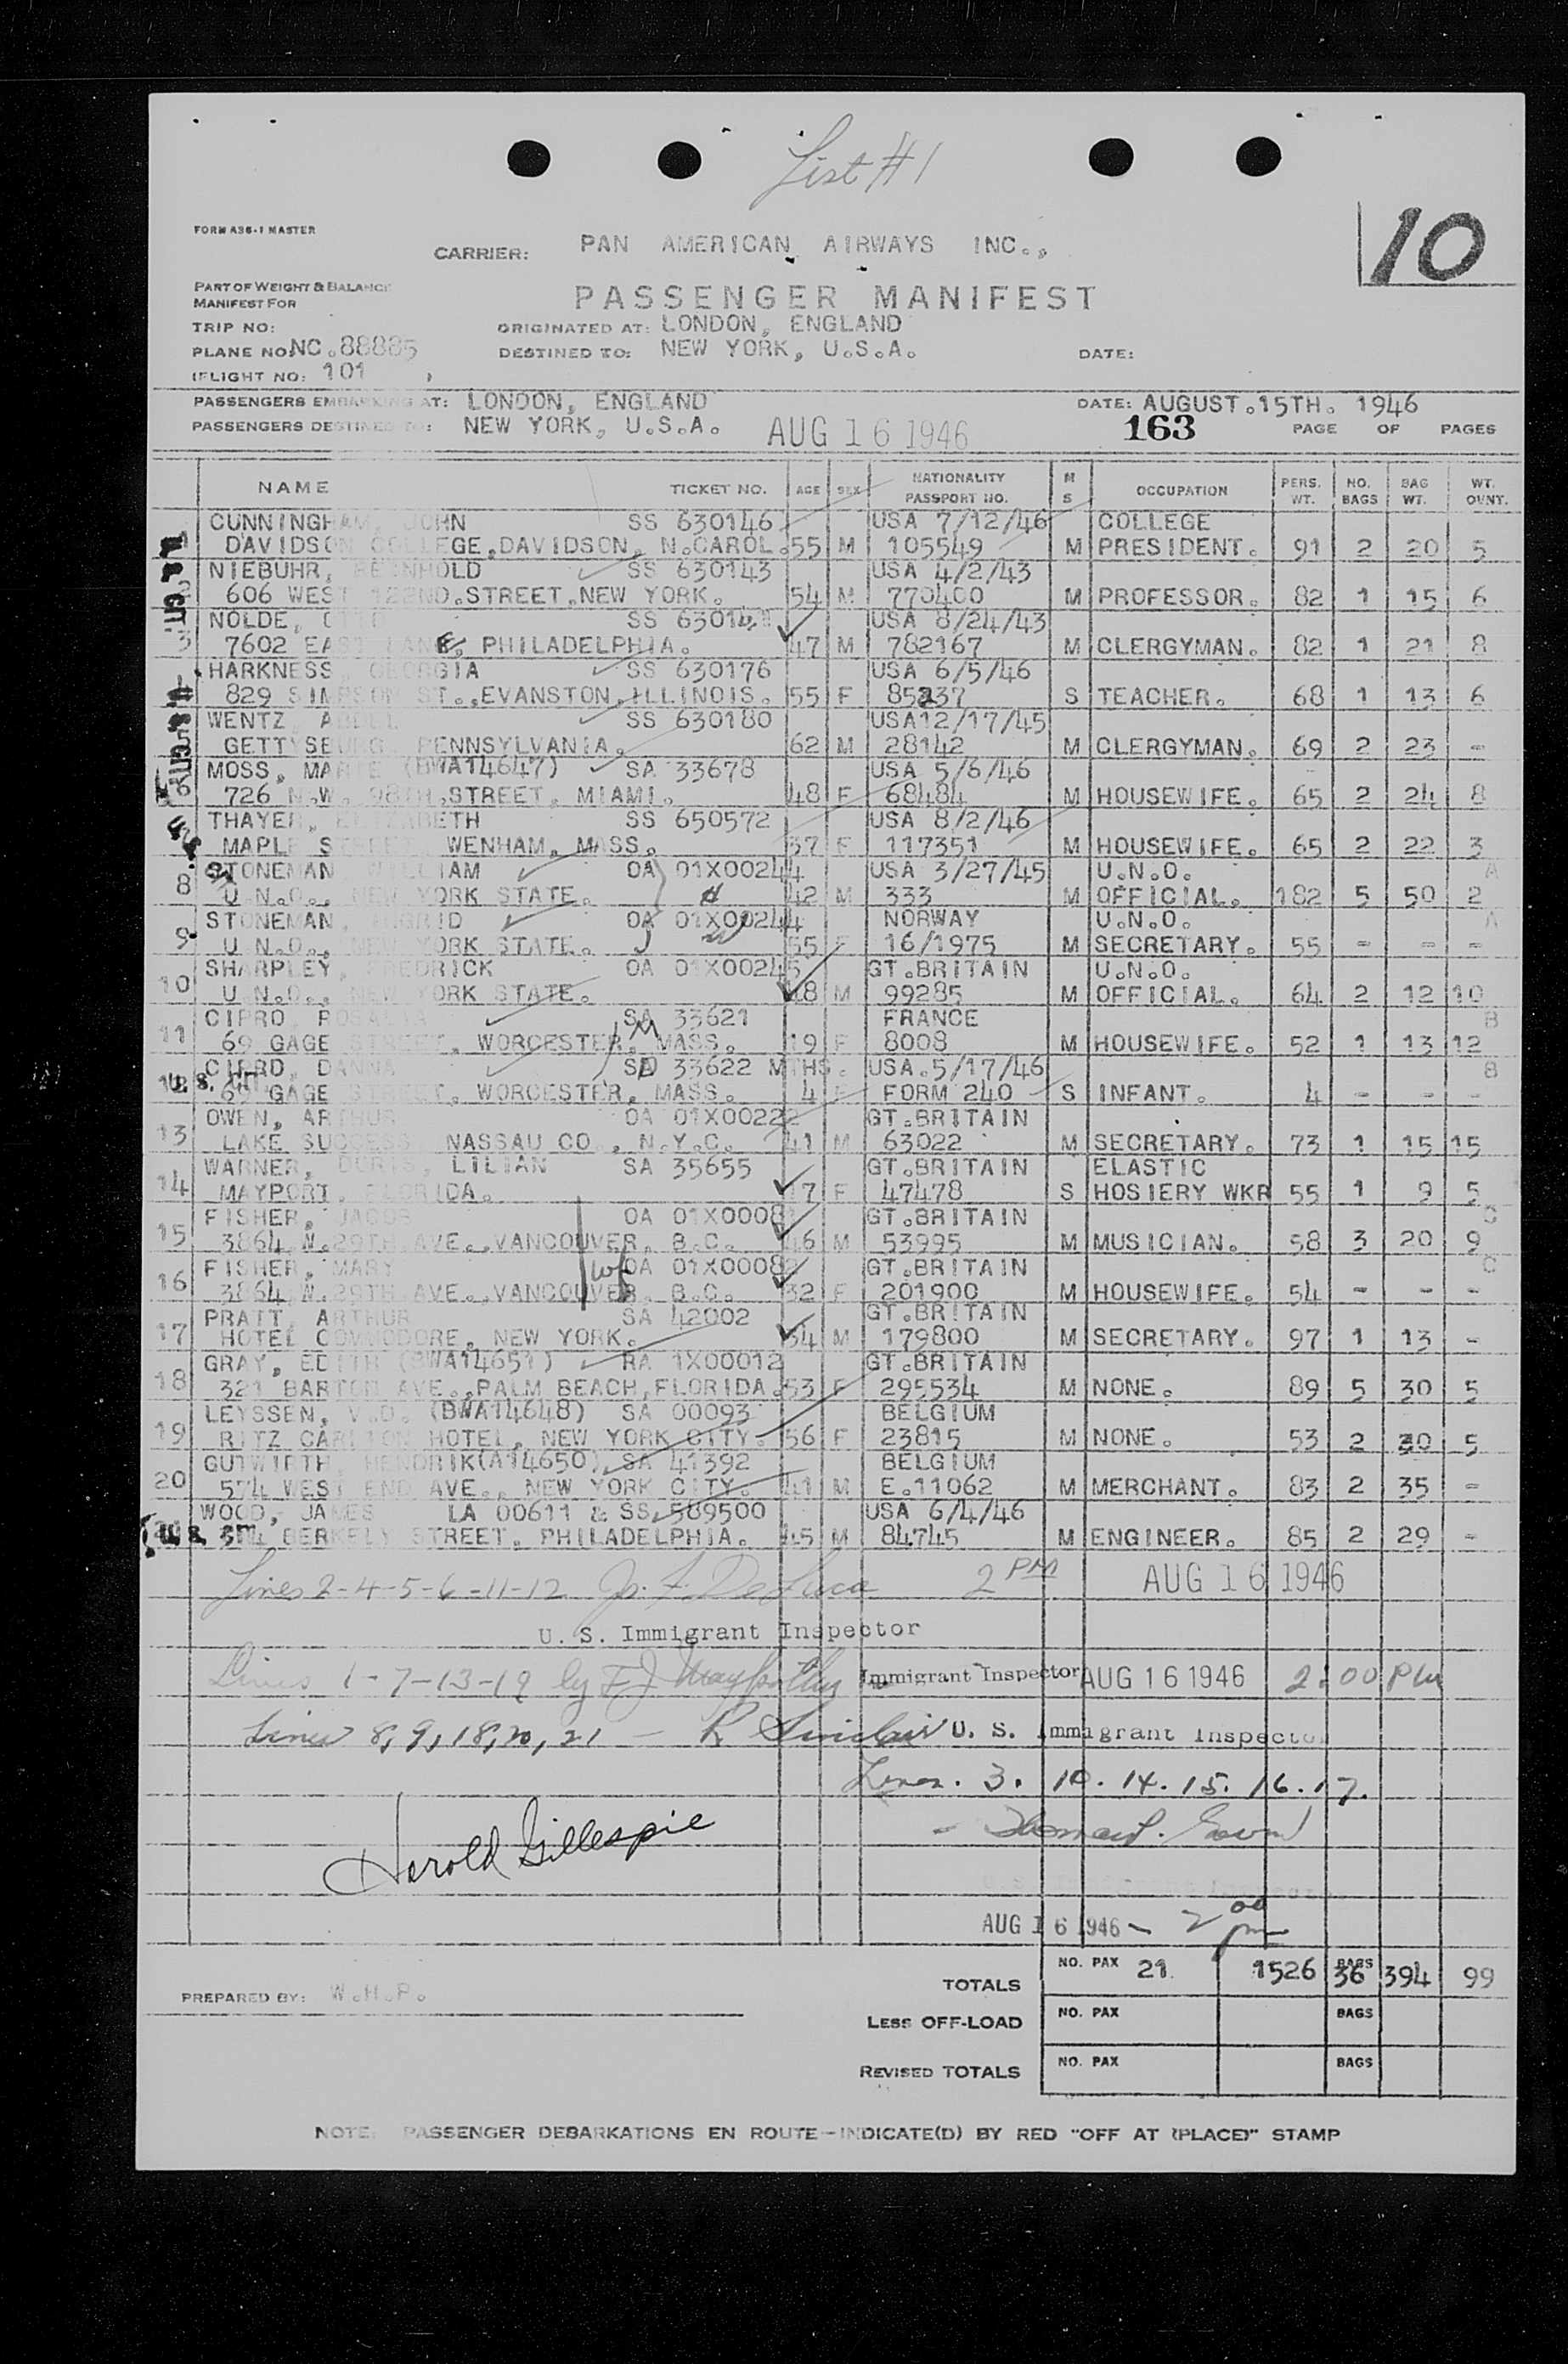 List #1
10
FORM A36-1 MASTER
CARRIER: PAN AMERICAN AIRWAYS INC.,
PART OF WEIGHT & BALANCE
MANIFEST FOR
PASSENGER MANIFEST
TRIP NO: ORIGINATED AT: LONDON, ENGLAND
PLANE NO: NC.88885 DESTINED TO: NEW YORK, U.S.A. DATE:
(FLIGHT NO: 101 )
PASSENGERS EMBARKING AT: LONDON, ENGLAND DATE: AUGUST.15TH. 1946
PASSENGERS DESTINED TO: NEW YORK, U.S.A. AUG 16 1946 163 PAGE OF PAGES
NAME TICKET NO. AGE SEX NATIONALITY PASSPORT NO. M S OCCUPATION PERS. WT. NO. BAGS BAG WT. WT. OVNT.
CUNNINGHAM, JOHN SS 630146 USA 7/12/46 COLLEGE
DAVIDSON COLLEGE,DAVIDSON, N.CAROL.55 M 105549 M PRESIDENT. 91 2 20 5
NIEBUHR, REINHOLD SS 630143 USA 4/2/43
606 WEST 122ND.STREET.NEW YORK. 54 M 770400 M PROFESSOR. 82 1 15 6
NOLDE, OTTO SS USA 8/24/43
3 7602 EAST LANE, PHILADELPHIA. 47 M 782167 M CLERGYMAN. 82 1 21 8
HARKNESS, GEORGIA SS 630176 USA 6/5/46
829 SIMPSON ST.,EVANSTON,ILLINOIS. 55 F 85237 S TEACHER. 68 1 13 6
WENTZ, ABDEL SS 630180 USA12/17/45
GETTYSBURG, PENNSYLVANIA. 62 M 28142 M CLERGYMAN. 69 2 23 -
MOSS, MARIE (BWA14647) SA 33678 USA 5/6/46
6 726 N.W. 98TH.STREET, MIAMI. 48 F 68484 M HOUSEWIFE. 65 2 24 8
THAYER, ELIZABETH SS 650572 USA 8/2/46
MAPLE STREET, WENHAM, MASS. 37 F 117351 M HOUSEWIFE. 65 2 22 3
STONEMAN WILLIAM OA 01X00244 USA 3/27/45 U.N.O. A
8 U.N.O., NEW YORK STATE. 42 M 333 M OFFICIAL. 182 5 50 2
STONEMAN, INGRID OA 01X00244 NORWAY U.N.O. A
9 U.N.O., NEW YORK STATE. 55 F 16/1975 M SECRETARY. 55 - - -
SHARPLEY, FREDRICK OA 01X00245 GT.BRITAIN U.N.O.
10 U.N.O., NEW YORK STATE. 48 M 99285 M OFFICIAL. 64 2 12 10
CIPRO, ROSALIA SA 33621 FRANCE B
11 69 GAGE STREET, WORCESTER, MASS. 19 F 8008 M HOUSEWIFE. 52 1 13 12
CIPRO, DANNA SA 33622 MTHS. USA.5/17/46 B
12 69 GAGE STREET, WORCESTER, MASS. 4 F FORM 240 S INFANT. 4 - - -
OWEN, ARTHUR OA 01X00222 GT.BRITAIN
13 LAKE SUCCESS, NASSAU CO., N.Y.C. 41 M 63022 M SECRETARY. 73 1 15 15
WARNER, DORIS, LILIAN SA 35655 GT.BRITAIN ELASTIC
14 MAYPORT, FLORIDA. 17 F 47478 S HOSIERY WKR 55 1 9 5
FISHER, JACOB OA 01X00081 GT.BRITAIN C
15 3864 W.29TH AVE.,VANCOUVER, B.C. 46 M 53995 M MUSICIAN. 58 3 20 9
FISHER, MARY OA 01X00082 GT.BRITAIN C
16 3864 W.29TH AVE.,VANCOUVER, B.C. 32 F 201900 M HOUSEWIFE. 54 - - -
PRATT, ARTHUR SA 42002 GT.BRITAIN
17 HOTEL COMMODORE, NEW YORK. 54 M 179800 M SECRETARY. 97 1 13 -
GRAY, EDITH (BWA14651) RA 1X00012 GT.BRITAIN
18 321 BARTON AVE.,PALM BEACH,FLORIDA.53 F 295534 M NONE. 89 5 30 5
LEYSSEN, V.D. (BWA14648) SA 00093 BELGIUM
19 RITZ CARLTON HOTEL, NEW YORK CITY. 56 F 23815 M NONE. 53 2 30 5
GUTWIRTH, HENDRIK(A14650), SA 41392 BELGIUM
20 574 WEST END AVE., NEW YORK CITY. 41 M E.11062 M MERCHANT. 83 2 35 -
WOOD, JAMES LA 00611 & SS.589500 USA 6/4/46
BERKELY STREET, PHILADELPHIA. 45 M 84745 M ENGINEER. 85 2 29 -
Lines 2-4-5-6-11-12 J. F. DeLuca 2 PM AUG 16 1946
U. S. Immigrant Inspector
Lines 1-7-13-19 by Immigrant Inspector AUG 16 1946 2:00 PM
Lines 8, 9, 18, 20, 21 - R Sinclair U. S. Immigrant Inspector
Lines. 3. 10. 14. 15. 16. 17.
Harold Gillespie
AUG 16 1946 - 2 00 pm
TOTALS NO. PAX 21 1526 BAGS 36 394 99
PREPARED BY: W.H.P.
LESS OFF-LOAD NO. PAX BAGS
REVISED TOTALS NO. PAX BAGS
NOTE: PASSENGER DEBARKATIONS EN ROUTE—INDICATE(D) BY RED "OFF AT (PLACE)" STAMP